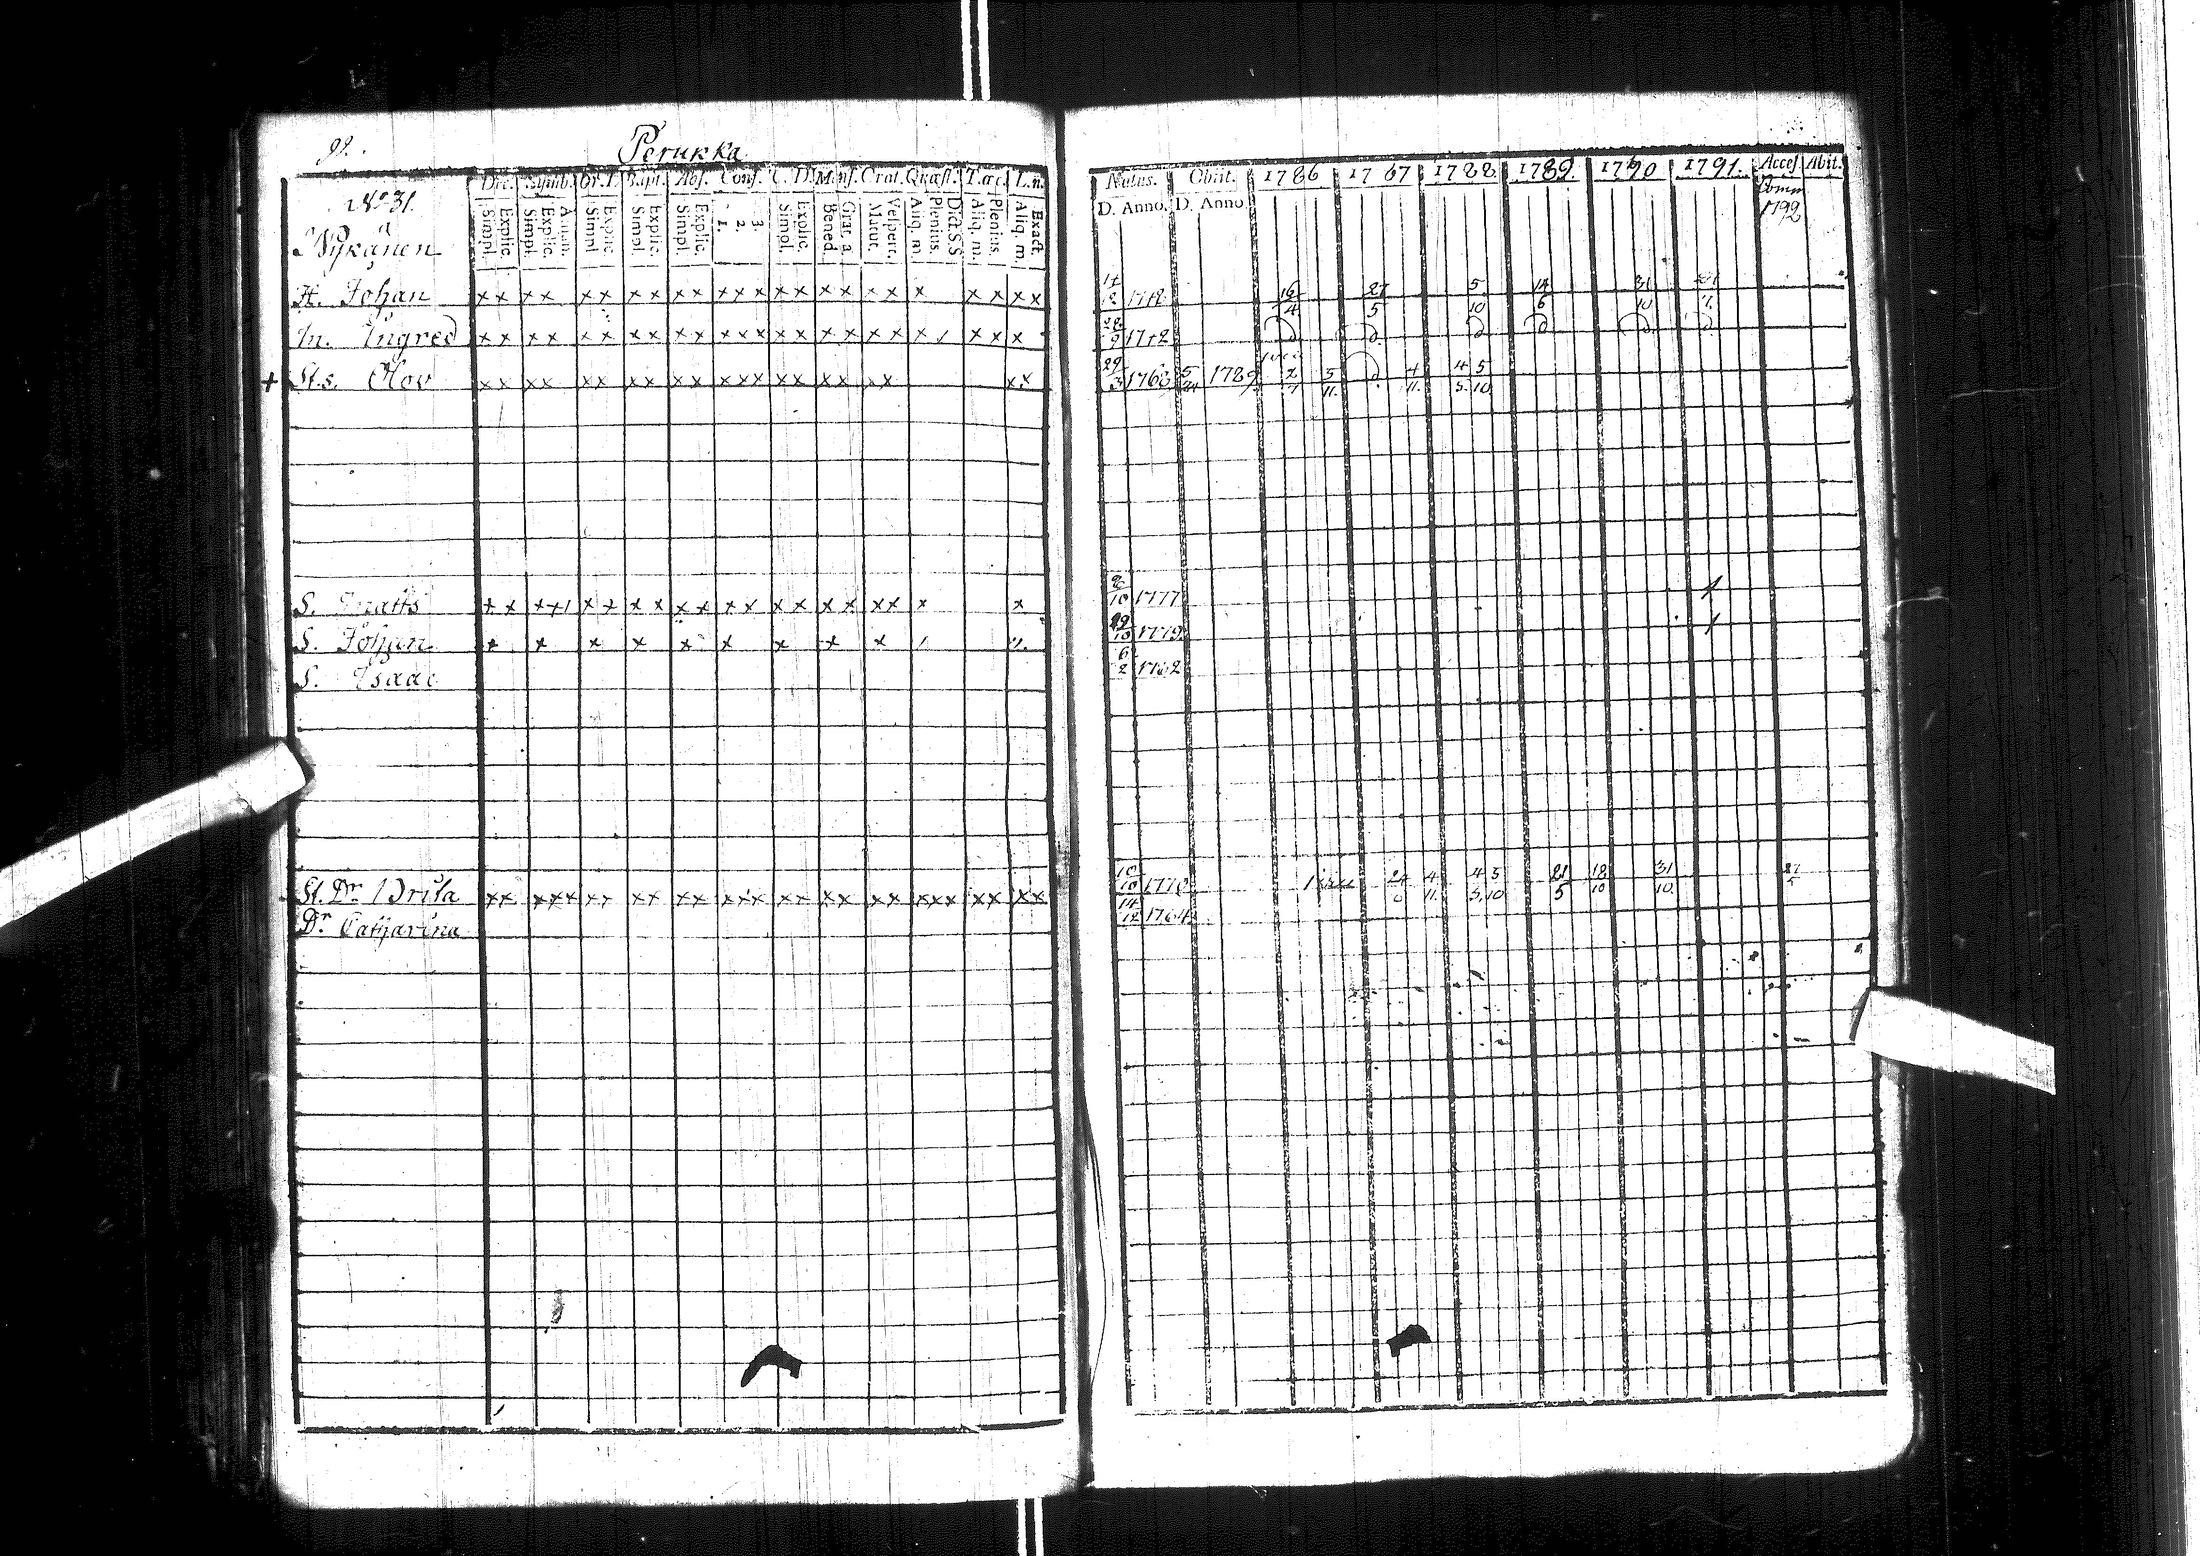 Perukka
Dec. Symb. Or. D. Bapt. Abs. Conf. C. D. Menf. Orat. Quæst. T. œc. L. n.
Simpl. Explic. Simpl. Explic. Athan. Simpl. Explic. Simpl. Explic. Simpl. Explic. 1. 2. 3. Simpl. Explic. Bened. Grat. a. Matut. Vesperr. Aliq. m. Plenius. Dict. S.S. Aliq. m. Plenius. Aliq. m. Exact.
No 31.
Nykänen
H. Johan x x x x x x x x x x x x x x x x x x x x x x x x
m. Ingred x x x x x x x x x x x x x x x x x x x x x x x
+ St.s. Olov x x x x x x x x x x x x x x x x x x x x x
S. Matts x x x x x x x x x x x x x x x x x x x x x
S. Johan x x x x x x x x x
S. Isaac
St. Dr. Brita x x x x x x x x x x x x x x x x x x x x x x x x x x x
Dr. Catharina
Natus. Obiit. 1786 1787 1788 1789. 1790 1791. Acces Abit.
D. Anno. D. Anno
Comm
1792
16/4 27/5 5/10 14/6 31/10
28/9 1712
29/3 1768 5/24 1789 2/7 5/11. 4/11. 4 5/5. 10
8/10 1777
10 1779
6/2 1782
10/10 1770 24 4/11. 4 5/5. 10 21/5 18/10 31/10
14/12 1764